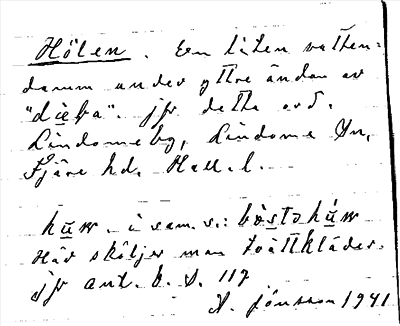 Hölen. En liten vatten=
damm under yttre ändan av
"dieka". jfr detta ord.
Lindomeby, Lindome sn,
Fjäre hd. Hall. l.
hūw. i sam. s.: bòstshúw
Här sköljer man tvättkläder.
jfr ant. b. s. 117
A. Jönsson 1941